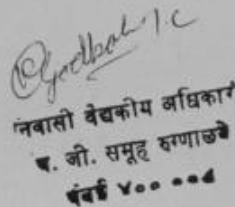 निवासी वैद्यकीय अधिकारी
ब. जी. समूह रुग्णालये
मुंबई ४०० ००८